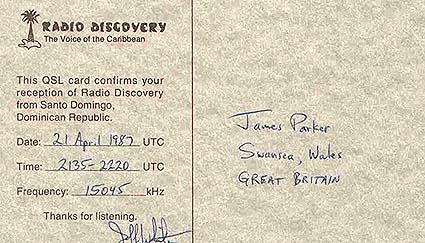 RADIO DISCOVERY
The Voice of the Caribbean
This QSL card confirms your
reception of Radio Discovery
from Santo Domingo,
Dominican Republic.
Date: 21 April 1987 UTC
Time: 2135-2220 UTC
Frequency: 15045 kHz
Thanks for listening.
James Parker
Swansea, Wales
GREAT BRITAIN